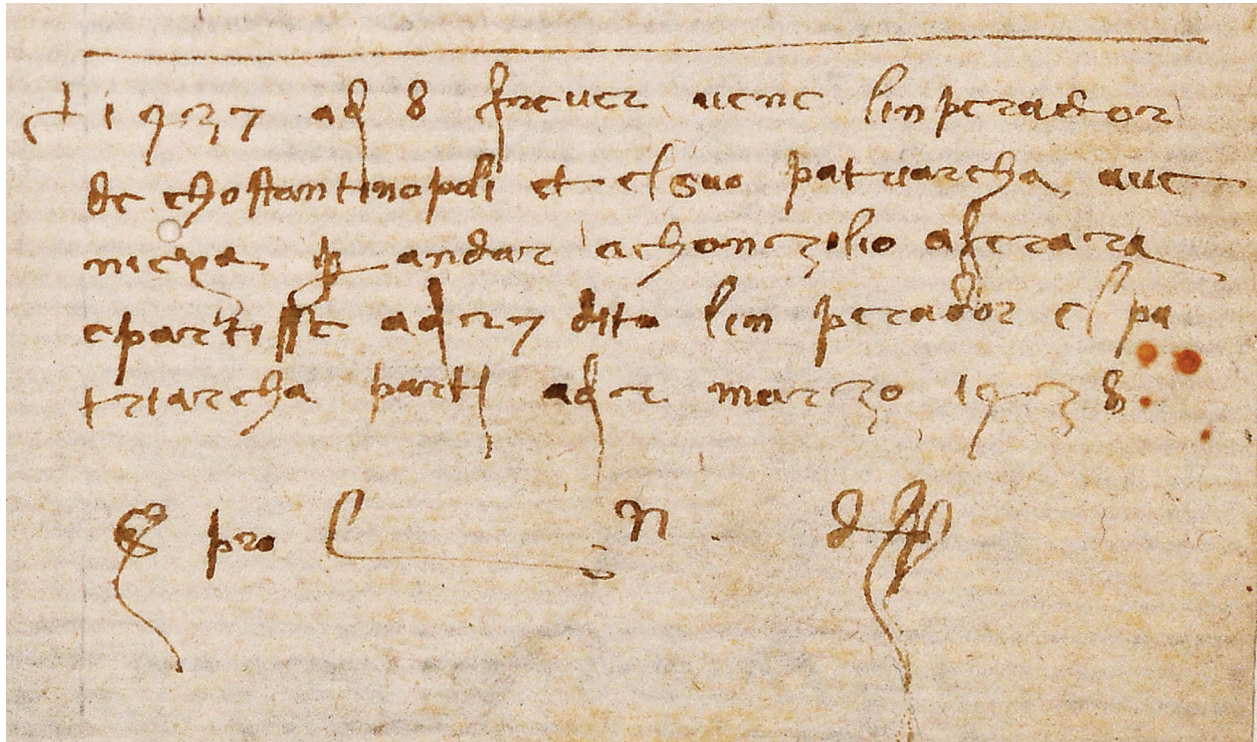 † 1437 adj 8 frever vene linperador
de chostantinopoli et el suo patriarcha ave
niexia per andar achonzilio aferara
epartisse adj 27 dito lin perador el pa
triarcha partj adj 2 marzo 1438
pro N